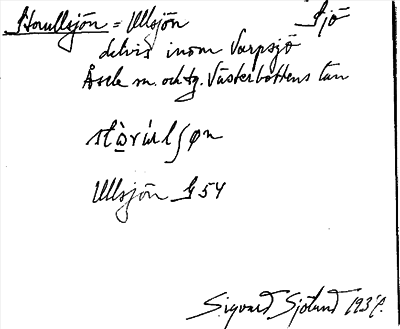 Storullsjön = Ullsjön Sjö
delvis inom Varpsjö
Åsele sn. och tg. Västerbottens län
stòrúlʃøn
Ullsjön G 54
Sigvard Sjölund